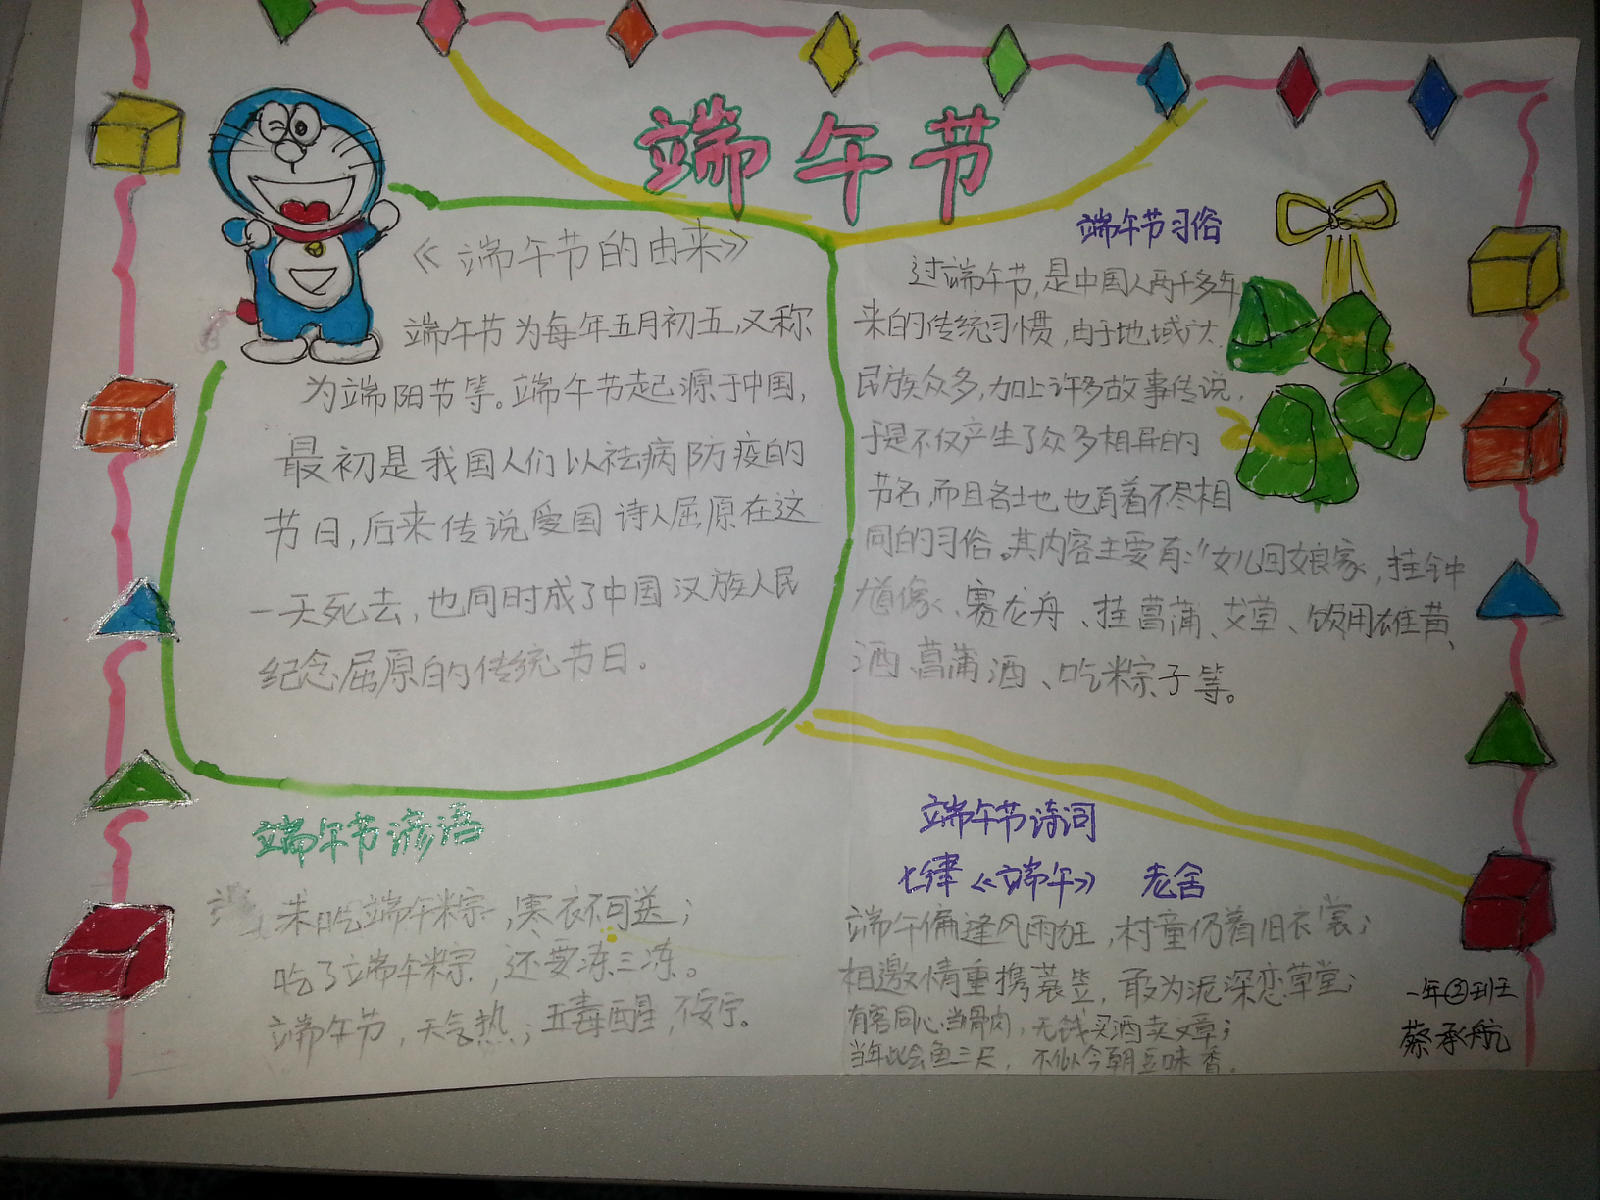 端午节
《端午节的由来》
端午节为每年五月初五,又称
为端阳节等。端午节起源于中国,
最初是我国人们以祛病防疫的
节日,后来传说爱国诗人屈原在这
一天死去,也同时成了中国汉族人民
纪念屈原的传统节日.
端午节习俗
过端午节,是中国人两千多年
来的传统习惯,由于地域广大.
民族众多,加上许多故事传说,
于是不仅产生了众多相异的
节名,而且各地也有着不尽相
同的习俗。其内容主要有:"女儿回娘家,挂钟
馗像、赛龙舟、挂菖蒲、艾草、饮用雄黄、
酒、菖蒲酒、吃粽子等。
端午节谚语
未吃端午粽,寒衣不可送;
吃了端午粽,还要冻三冻。
端午节,天气热;五毒醒,不安宁。
端午节诗词
七律《端午》 老舍
端午偏逢风雨狂,村童仍着旧衣裳;
相邀情重携蓑笠,敢为泥深恋草堂;
有客同心当骨肉,无钱买酒卖文章;
当年此会鱼三尺,不似今朝豆味香.
一年③班
蔡承航